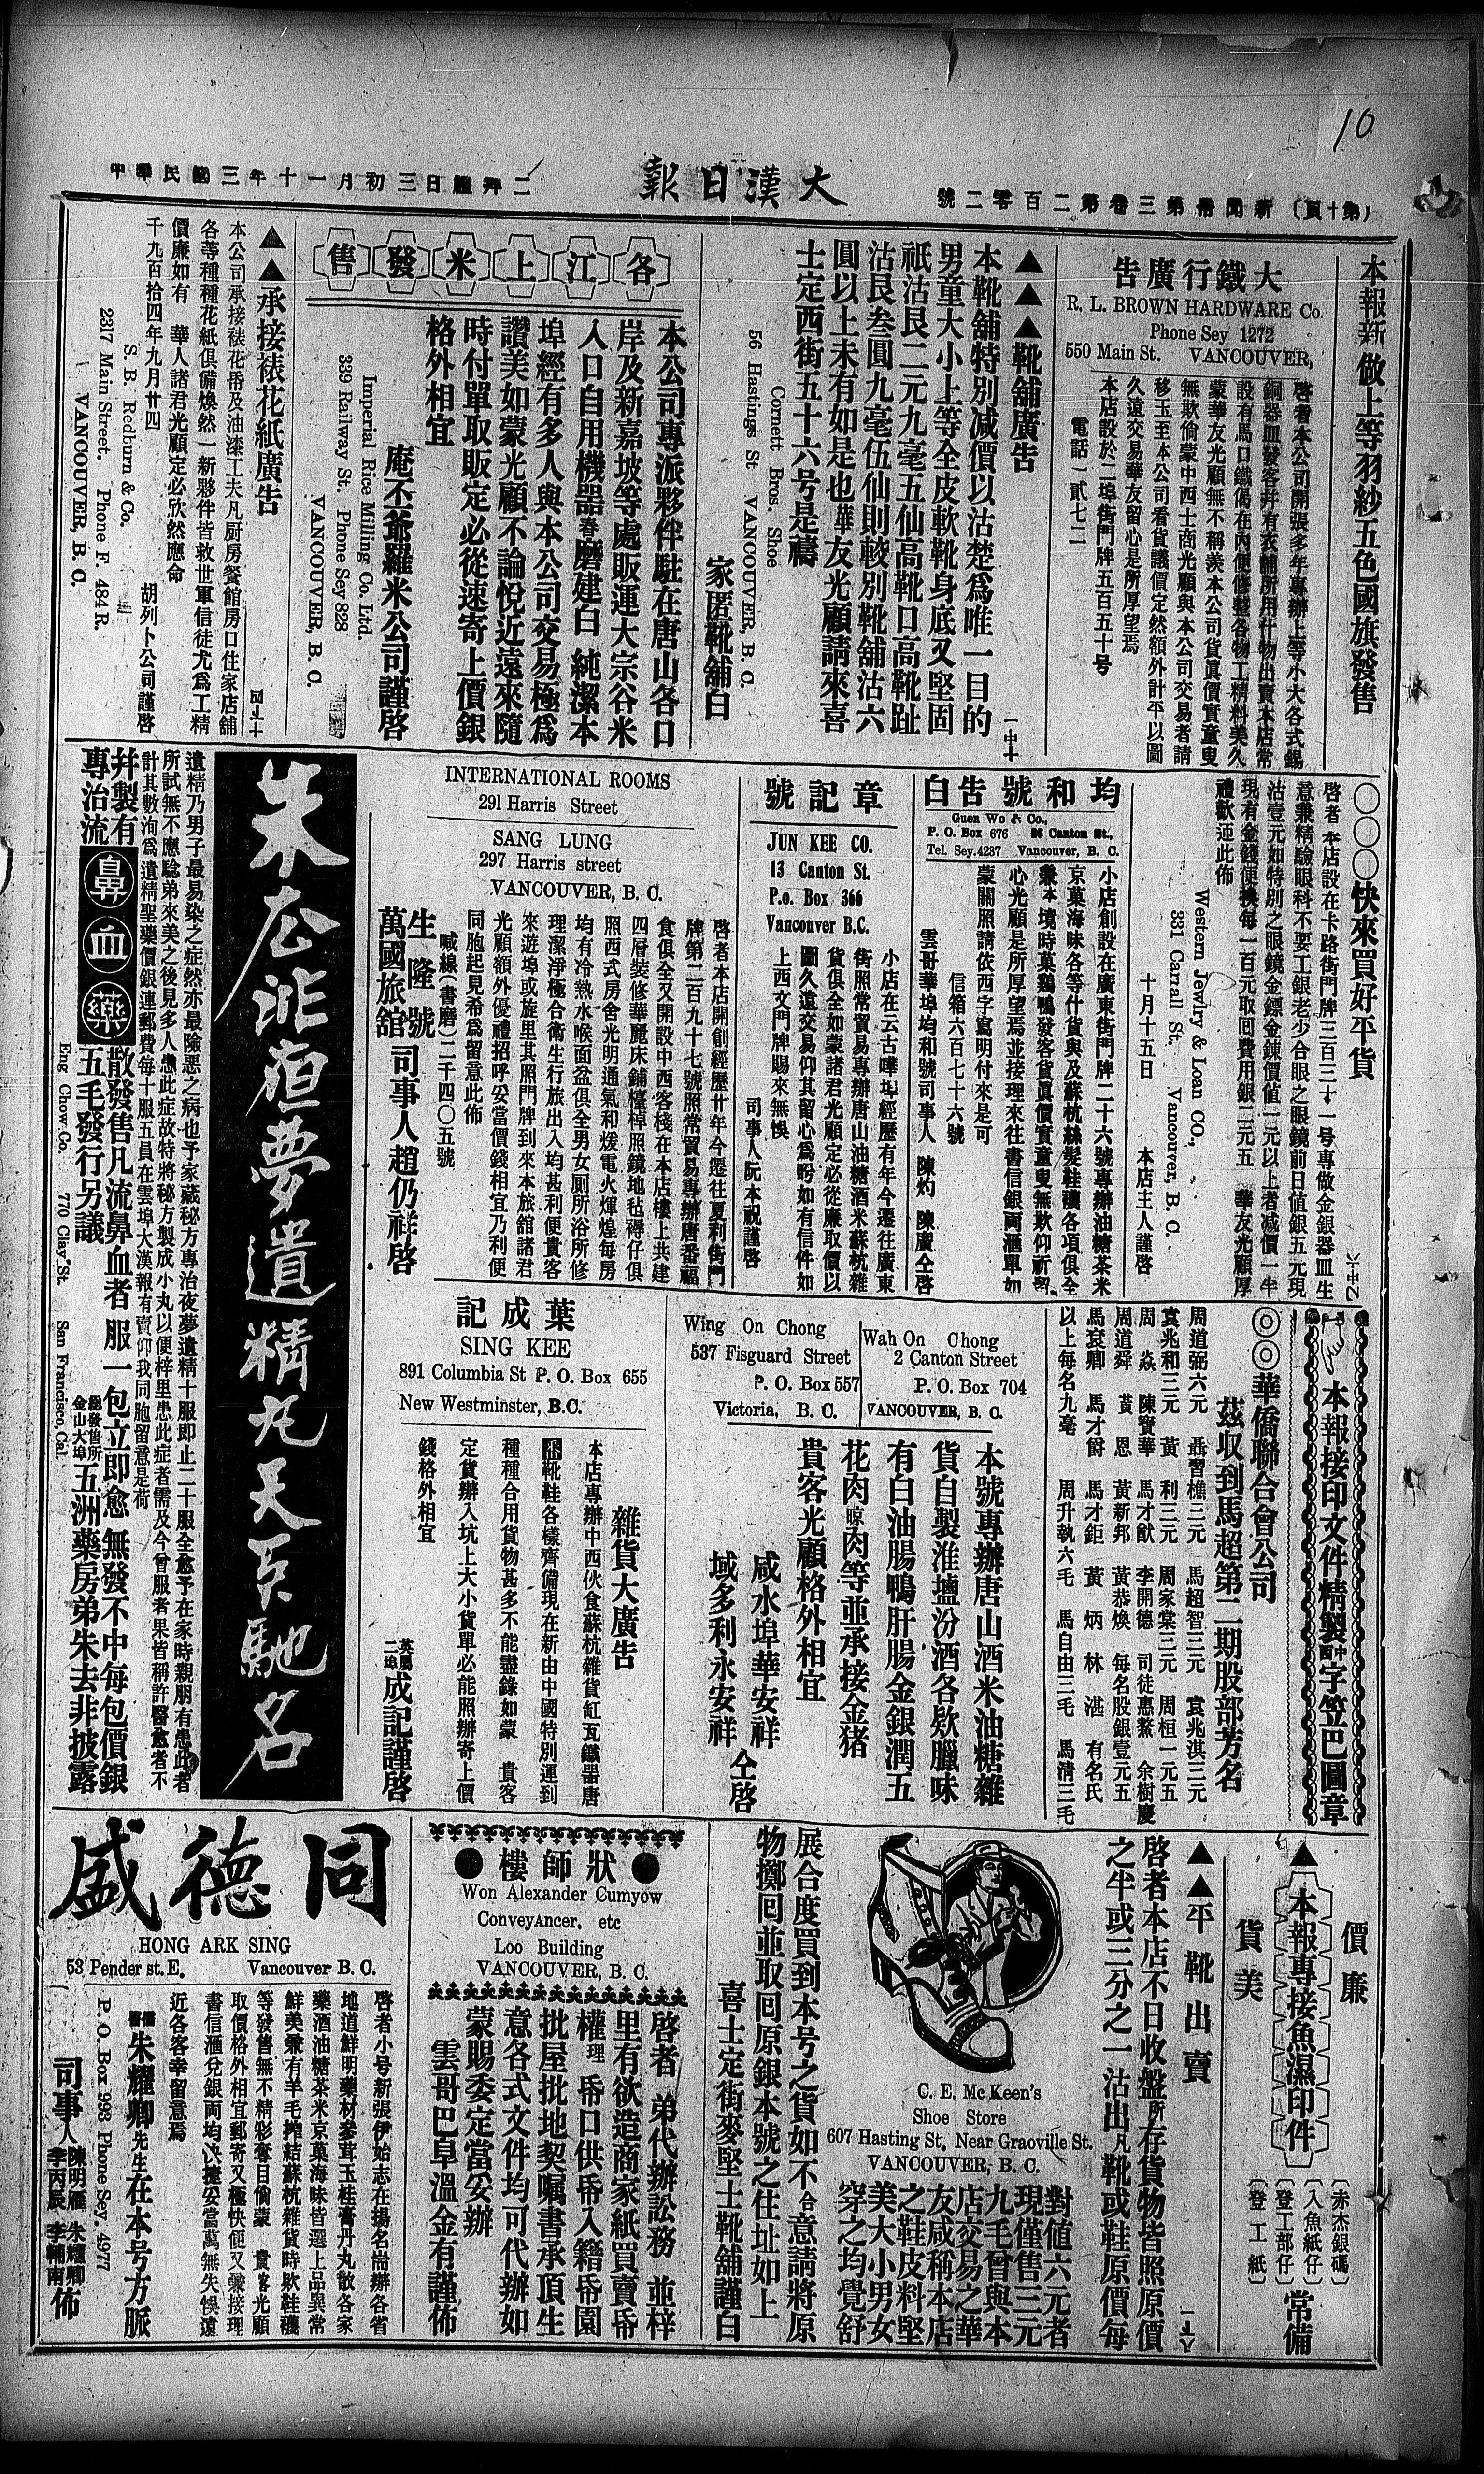 10
(第十頁) 新聞紙第三卷第二百零二號
大漢日報
中華民國三年十一月初三日禮拜二
本報新做上等羽紗五色國旗發售
大鐵行廣告
R. L. BROWN HARDWARE Co.
Phone Sey 1272
550 Main St. VANCOUVER,
啓者本公司開張多年專辦上等小大各式錫
銅器皿發客幷有衣舖所用什物出賣本店常
設有馬口鐵偈在內便修整各物工精料美久
蒙華友光顧無不稱羨本公司貨眞價實童叟
無欺倘蒙中西士商光顧與本公司交易者請
移玉至本公司看貨議價定然額外計平以圖
久遠交易華友留心是所厚望焉
本店設於二埠街門牌五百五十号
電話一貳七二
▲▲▲靴舖廣告
本靴舖特別減價以沽楚爲唯一目的
男童大小上等全皮軟靴身底又堅固
祇沽艮二元九毫五仙高靴口高靴趾
沽艮叁圓九毫伍仙則較別靴舖沽六
圓以上未有如是也華友光顧請來喜
士定西街五十六号是禱
Cornett Bros. Shoe
56 Hastings St VANCOUVER, B. C.
家匿靴舖白
各江上米發售
本公司專派夥伴駐在唐山各口
岸及新嘉坡等處販運大宗谷米
入口自用機器舂磨建白純潔本
埠經有多人與本公司交易極爲
讚美如蒙光顧不論悅近遠來隨
時付單取販定必從速寄上價銀
格外相宜
庵丕爺羅米公司謹啓
Imperial Rice Milling Co. Ltd.
339 Railway St. Phone Sey 828
VANCOUVER, B. C.
▲▲承接裱花紙廣告
本公司承接裱花帋及油漆工夫凡厨房餐館房口住家店舖
各等種種花紙俱備煥然一新夥伴皆救世軍信徒尤爲工精
價廉如有 華人諸君光顧定必欣然應命
千九百拾四年九月廿四
胡列卜公司謹啓
S. B. Redburn & Co.
2317 Main Street. Phone F. 484 R.
VANCOUVER, B. C.
〇〇〇快來買好平貨
啓者本店設在卡路街門牌三百三十一号專做金銀器皿生
意兼精驗眼科不要工銀老少合眼之眼鏡前日值銀五元現
沽壹元如特別之眼鏡金鏢金鍊價值一元以上者减價一半
現有金錢便換每一百元取回費用銀二元五 華友光顧厚
禮歡迎此佈
Western Jewlry & Loan CO.,
331 Carrall St. Vancouver, B. C.
十月十五日 本店主人謹啓
均和號告白
Guen Wo & Co.,
P. O. Box 676 26 Canton St.,
Tel. Sey. 4237 Vancouver, B. C.
小店創設在廣東街門牌二十六號專辦油糖茶米
京菓海味各等什貨與及蘇杭絲髮鞋襪各項俱全
兼本境時菓鷄鴨發客貨眞價實童叟無欺仰祈留
心光顧是所厚望焉並接理來往書信銀兩滙單如
蒙關照請依西字寫明付來是可
信箱六百七十六號
雲哥華埠均和號司事人 陳灼 陳廣仝啓
章記號
JUN KEE CO.
13 Canton St.
P.o. Box 366
Vancouver B.C.
小店在云古嘩埠經歷有年今遷往廣東
街照常貿易專辦唐山油糖酒米蘇杭雜
貨俱全如蒙諸君光顧定必從廉取價以
圖久遠交易仰其留心爲盼如有信件如
上西文門牌賜來無悞
司事人阮本祝謹啓
INTERNATIONAL ROOMS
291 Harris Street
SANG LUNG
297 Harris street
VANCOUVER, B. C.
啓者本店開創經歷廿年今遷往夏利街門
牌第二百九十七號照常貿易專辦唐番福
食俱全又開設中西客棧在本店樓上共建
四層裝修華麗床鋪檯棹照鏡地毡褥仔俱
照西式房舍光明通氣和煖電火煇煌每房
均有冷熱水喉面盆俱全男女厠所浴所修
理潔淨極合衛生行旅出入均甚利便貴客
來遊埠或旋里其照門牌到來本旅舘諸君
光顧額外優禮招呼妥當價錢相宜乃利便
同胞起見希爲留意此佈
喊線(書磨)二千四〇五號
生隆號
萬國旅舘 司事人趙仍祥啓
朱去非夜夢遺精丸天下馳名
遺精乃男子最易染之症然亦最險惡之病也予家藏秘方專治夜夢遺精十服即止二十服全愈予在家時親朋有患此者
所試無不應騐弟來美之後見多人患此症故特將秘方製成小丸以便梓里患此症者需及今曾服者果皆稱許醫愈者不
計其數洵爲遺精聖藥價銀連郵費每十服五員在雲埠大漢報有賣仰我同胞留意是荷
幷製有
專治流
鼻血藥
散發售凡流鼻血者 服一包立即愈 無發不中每包價銀
五毛發行另議
總發售所
金山大埠
五洲藥房弟朱去非披露
Eng Chow Co. 770 Clay St. San Francisco, Cal.
本報接印文件精製中西字笠巴圖章
◎◎華僑聯合會公司
茲收到馬超第二期股部芳名
周道弼六元 聶習樵三元 馬超智三元 袁兆淇三元
袁兆和三元 黃利三元 周家棠三元 周桓一元五
周焱 陳寶華 馬才猷 李開德 司徒惠鰲 余樹慶
周道舜 黃恩 黃新邦 黃恭煥 每名股銀壹元五
馬袞卿 馬才爵 馬才鉅 黃炳 林湛 有名氏
以上每名九毫 周升執六毛 馬自由三毛 馬清三毛
Wah On Chong
2 Canton Street
P. O. Box 704
VANCOUVER, B. C.
Wing On Chong
537 Fisguard Street
P. O. Box 557
Victoria, B. C.
本號專辦唐山酒米油糖雜
貨自製淮壚汾酒各欵臘味
有白油腸鴨肝腸金銀潤五
花肉晾肉等並承接金猪
貴客光顧格外相宜
咸水埠華安祥
域多利永安祥
仝啓
葉成記
SING KEE
891 Columbia St P. O. Box 655
New Westminster, B.C.
雜貨大廣告
本店專辦中西伙食蘇杭雜貨缸瓦鐵器唐
靴鞋各樣齊備現在新由中國特別運到
種種合用貨物甚多不能盡錄如蒙 貴客
定貨辦入坑上大小貨單必能照辦寄上價
錢格外相宜
英屬
二埠
成記謹啓
價廉
▲本報專接魚濕印件
貨美
(赤杰銀碼)
(入魚紙仔)
(登工部仔)
(登工紙)
常備
▲▲平靴出賣
啓者本店不日收盤所存貨物皆照原價
之半或三分之一沽出凡靴或鞋原價每
對值六元者
現僅售三元
九毛曾與本
店交易之華
友咸稱本店
之鞋皮料堅
美大小男女
穿之均覺舒
C. E. Mc Keen's
Shoe Store
607 Hasting St. Near Graoville St.
VANCOUVER, B. C.
展合度買到本号之貨如不合意請將原
物擲囘並取囘原銀本號之住址如上
喜士定街麥堅士靴舖謹白
●狀師樓●
Won Alexander Cumyow
Conveyancer, etc
Loo Building
VANCOUVER, B. C.
啓者 弟代辦訟務 並梓
里有欲造商家紙買賣帋
權理帋口供帋入籍帋園
批屋批地契嘱書承頂生
意各式文件均可代辦如
蒙賜委定當妥辦
雲哥巴阜溫金有謹佈
同德盛
HONG ARK SING
53 Pender st. E. Vancouver B. C.
啓者小号新張伊始志在揚名耑辦各省
地道鮮明藥材參茸玉桂膏丹丸散各家
藥酒油糖茶米京菓海味皆選上品異常
鮮美兼有羊毛搾結蘇杭雜貨時欵鞋襪
等發售無不精彩奪目倘蒙 貴客光顧
取價格外相宜郵寄又極快便又兼接理
書信滙兌銀両均快捷妥當萬無失悞遠
近各客幸留意焉
儒醫朱耀卿先生在本号方脈
P. O. Box 993 Phone Sey. 4977
司事人 陳明雁 朱耀卿 李丙辰 李輔南 佈